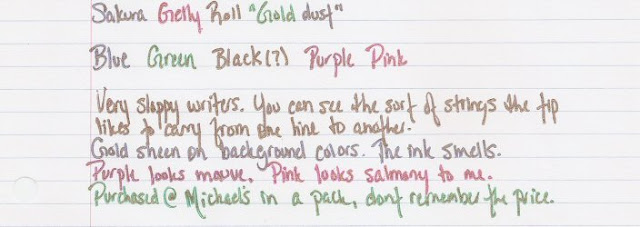 Sakura Gelly Roll "Gold dust"
Blue Green Black(?) Purple Pink
Very sloppy writers. You can see the sort of strings the tip
likes to carry from one line to another.
Gold sheen on background colors. The ink smells.
Purple looks mauve. Pink looks salmony to me.
Purchased @ Michael's in a pack, dont remember the price.